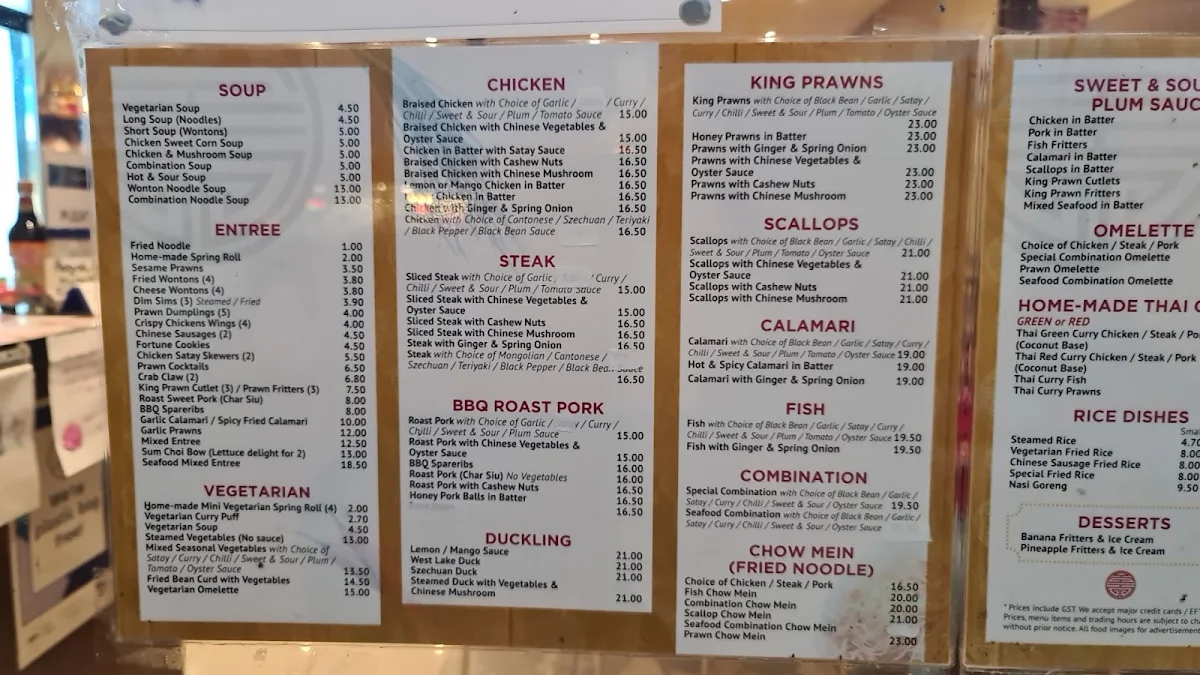 SOUP
Vegetarian Soup 4.50
Long Soup (Noodles) 4.50
Short Soup (Wontons) 5.00
Chicken Sweet Corn Soup 5.00
Chicken & Mushroom Soup 5.00
Combination Soup 5.00
Hot & Sour Soup 5.00
Wonton Noodle Soup 13.00
Combination Noodle Soup 13.00
ENTREE
Fried Noodle 1.00
Home-made Spring Roll 2.00
Sesame Prawns 3.50
Fried Wontons (4) 3.80
Cheese Wontons (4) 3.80
Dim Sims (3) Steamed / Fried 3.90
Prawn Dumplings (5) 4.00
Crispy Chickens Wings (4) 4.00
Chinese Sausages (2) 4.50
Fortune Cookies 4.50
Chicken Satay Skewers (2) 5.50
Prawn Cocktails 6.50
Crab Claw (2) 6.80
King Prawn Cutlet (3) / Prawn Fritters (3) 7.50
Roast Sweet Pork (Char Siu) 8.00
BBQ Spareribs 8.00
Garlic Calamari / Spicy Fried Calamari 10.00
Garlic Prawns 12.00
Mixed Entree 12.50
Sum Choi Bow (Lettuce delight for 2) 13.00
Seafood Mixed Entree 18.50
VEGETARIAN
Home-made Mini Vegetarian Spring Roll (4) 2.00
Vegetarian Curry Puff 2.70
Vegetarian Soup 4.50
Steamed Vegetables (No sauce) 13.00
Mixed Seasonal Vegetables with Choice of
Satay / Curry / Chilli / Sweet & Sour / Plum /
Tomato / Oyster Sauce 13.50
Fried Bean Curd with Vegetables 14.50
Vegetarian Omelette 15.00
CHICKEN
Braised Chicken with Choice of Garlic / / Curry /
Chilli / Sweet & Sour / Plum / Tomato Sauce 15.00
Braised Chicken with Chinese Vegetables &
Oyster Sauce 15.00
Chicken in Batter with Satay Sauce 16.50
Braised Chicken with Cashew Nuts 16.50
Braised Chicken with Chinese Mushroom 16.50
Lemon or Mango Chicken in Batter 16.50
Chicken in Batter 16.50
Chicken with Ginger & Spring Onion 16.50
Chicken with Choice of Cantonese / Szechuan / Teriyaki
/ Black Pepper / Black Bean Sauce 16.50
STEAK
Sliced Steak with Choice of Garlic / Curry /
Chilli / Sweet & Sour / Plum / Tomato Sauce 15.00
Sliced Steak with Chinese Vegetables &
Oyster Sauce 15.00
Sliced Steak with Cashew Nuts 16.50
Sliced Steak with Chinese Mushroom 16.50
Steak with Ginger & Spring Onion 16.50
Steak with Choice of Mongolian / Cantonese /
Szechuan / Teriyaki / Black Pepper / Black Bean Sauce
16.50
BBQ ROAST PORK
Roast Pork with Choice of Garlic / / Curry /
Chilli / Sweet & Sour / Plum Sauce 15.00
Roast Pork with Chinese Vegetables &
Oyster Sauce 15.00
BBQ Spareribs 16.00
Roast Pork (Char Siu) No Vegetables 16.00
Roast Pork with Cashew Nuts 16.50
Honey Pork Balls in Batter 16.50
16.50
DUCKLING
Lemon / Mango Sauce 21.00
West Lake Duck 21.00
Szechuan Duck 21.00
Steamed Duck with Vegetables &
Chinese Mushroom 21.00
KING PRAWNS
King Prawns with Choice of Black Bean / Garlic / Satay /
Curry / Chilli / Sweet & Sour / Plum / Tomato / Oyster Sauce
23.00
Honey Prawns in Batter 23.00
Prawns with Ginger & Spring Onion 23.00
Prawns with Chinese Vegetables &
Oyster Sauce 23.00
Prawns with Cashew Nuts 23.00
Prawns with Chinese Mushroom 23.00
SCALLOPS
Scallops with Choice of Black Bean / Garlic / Satay / Chilli /
Sweet & Sour / Plum / Tomato / Oyster Sauce 21.00
Scallops with Chinese Vegetables &
Oyster Sauce 21.00
Scallops with Cashew Nuts 21.00
Scallops with Chinese Mushroom 21.00
CALAMARI
Calamari with Choice of Black Bean / Garlic / Satay / Curry /
Chilli / Sweet & Sour / Plum / Tomato / Oyster Sauce 19.00
Hot & Spicy Calamari in Batter 19.00
Calamari with Ginger & Spring Onion 19.00
FISH
Fish with Choice of Black Bean / Garlic / Satay / Curry /
Chilli / Sweet & Sour / Plum / Tomato / Oyster Sauce 19.50
Fish with Ginger & Spring Onion 19.50
COMBINATION
Special Combination with Choice of Black Bean / Garlic /
Satay / Curry / Chilli / Sweet & Sour / Oyster Sauce 19.50
Seafood Combination with Choice of Black Bean / Garlic /
Satay / Curry / Chilli / Sweet & Sour / Oyster Sauce
CHOW MEIN
(FRIED NOODLE)
Choice of Chicken / Steak / Pork 16.50
Fish Chow Mein 20.00
Combination Chow Mein 20.00
Scallop Chow Mein 21.00
Seafood Combination Chow Mein
Prawn Chow Mein 23.00
SWEET & SOU
PLUM SAUC
Chicken in Batter
Pork in Batter
Fish Fritters
Calamari in Batter
Scallops in Batter
King Prawn Cutlets
King Prawn Fritters
Mixed Seafood in Batter
OMELETTE
Choice of Chicken / Steak / Pork
Special Combination Omelette
Prawn Omelette
Seafood Combination Omelette
HOME-MADE THAI C
GREEN or RED
Thai Green Curry Chicken / Steak / Po
(Coconut Base)
Thai Red Curry Chicken / Steak / Pork
(Coconut Base)
Thai Curry Fish
Thai Curry Prawns
RICE DISHES
Sma
Steamed Rice 4.70
Vegetarian Fried Rice 8.00
Chinese Sausage Fried Rice 8.00
Special Fried Rice 8.00
Nasi Goreng 9.50
DESSERTS
Banana Fritters & Ice Cream
Pineapple Fritters & Ice Cream
* Prices include GST. We accept major credit cards / EFT
Prices, menu items and trading hours are subject to cha
without prior notice. All food images for advertisement